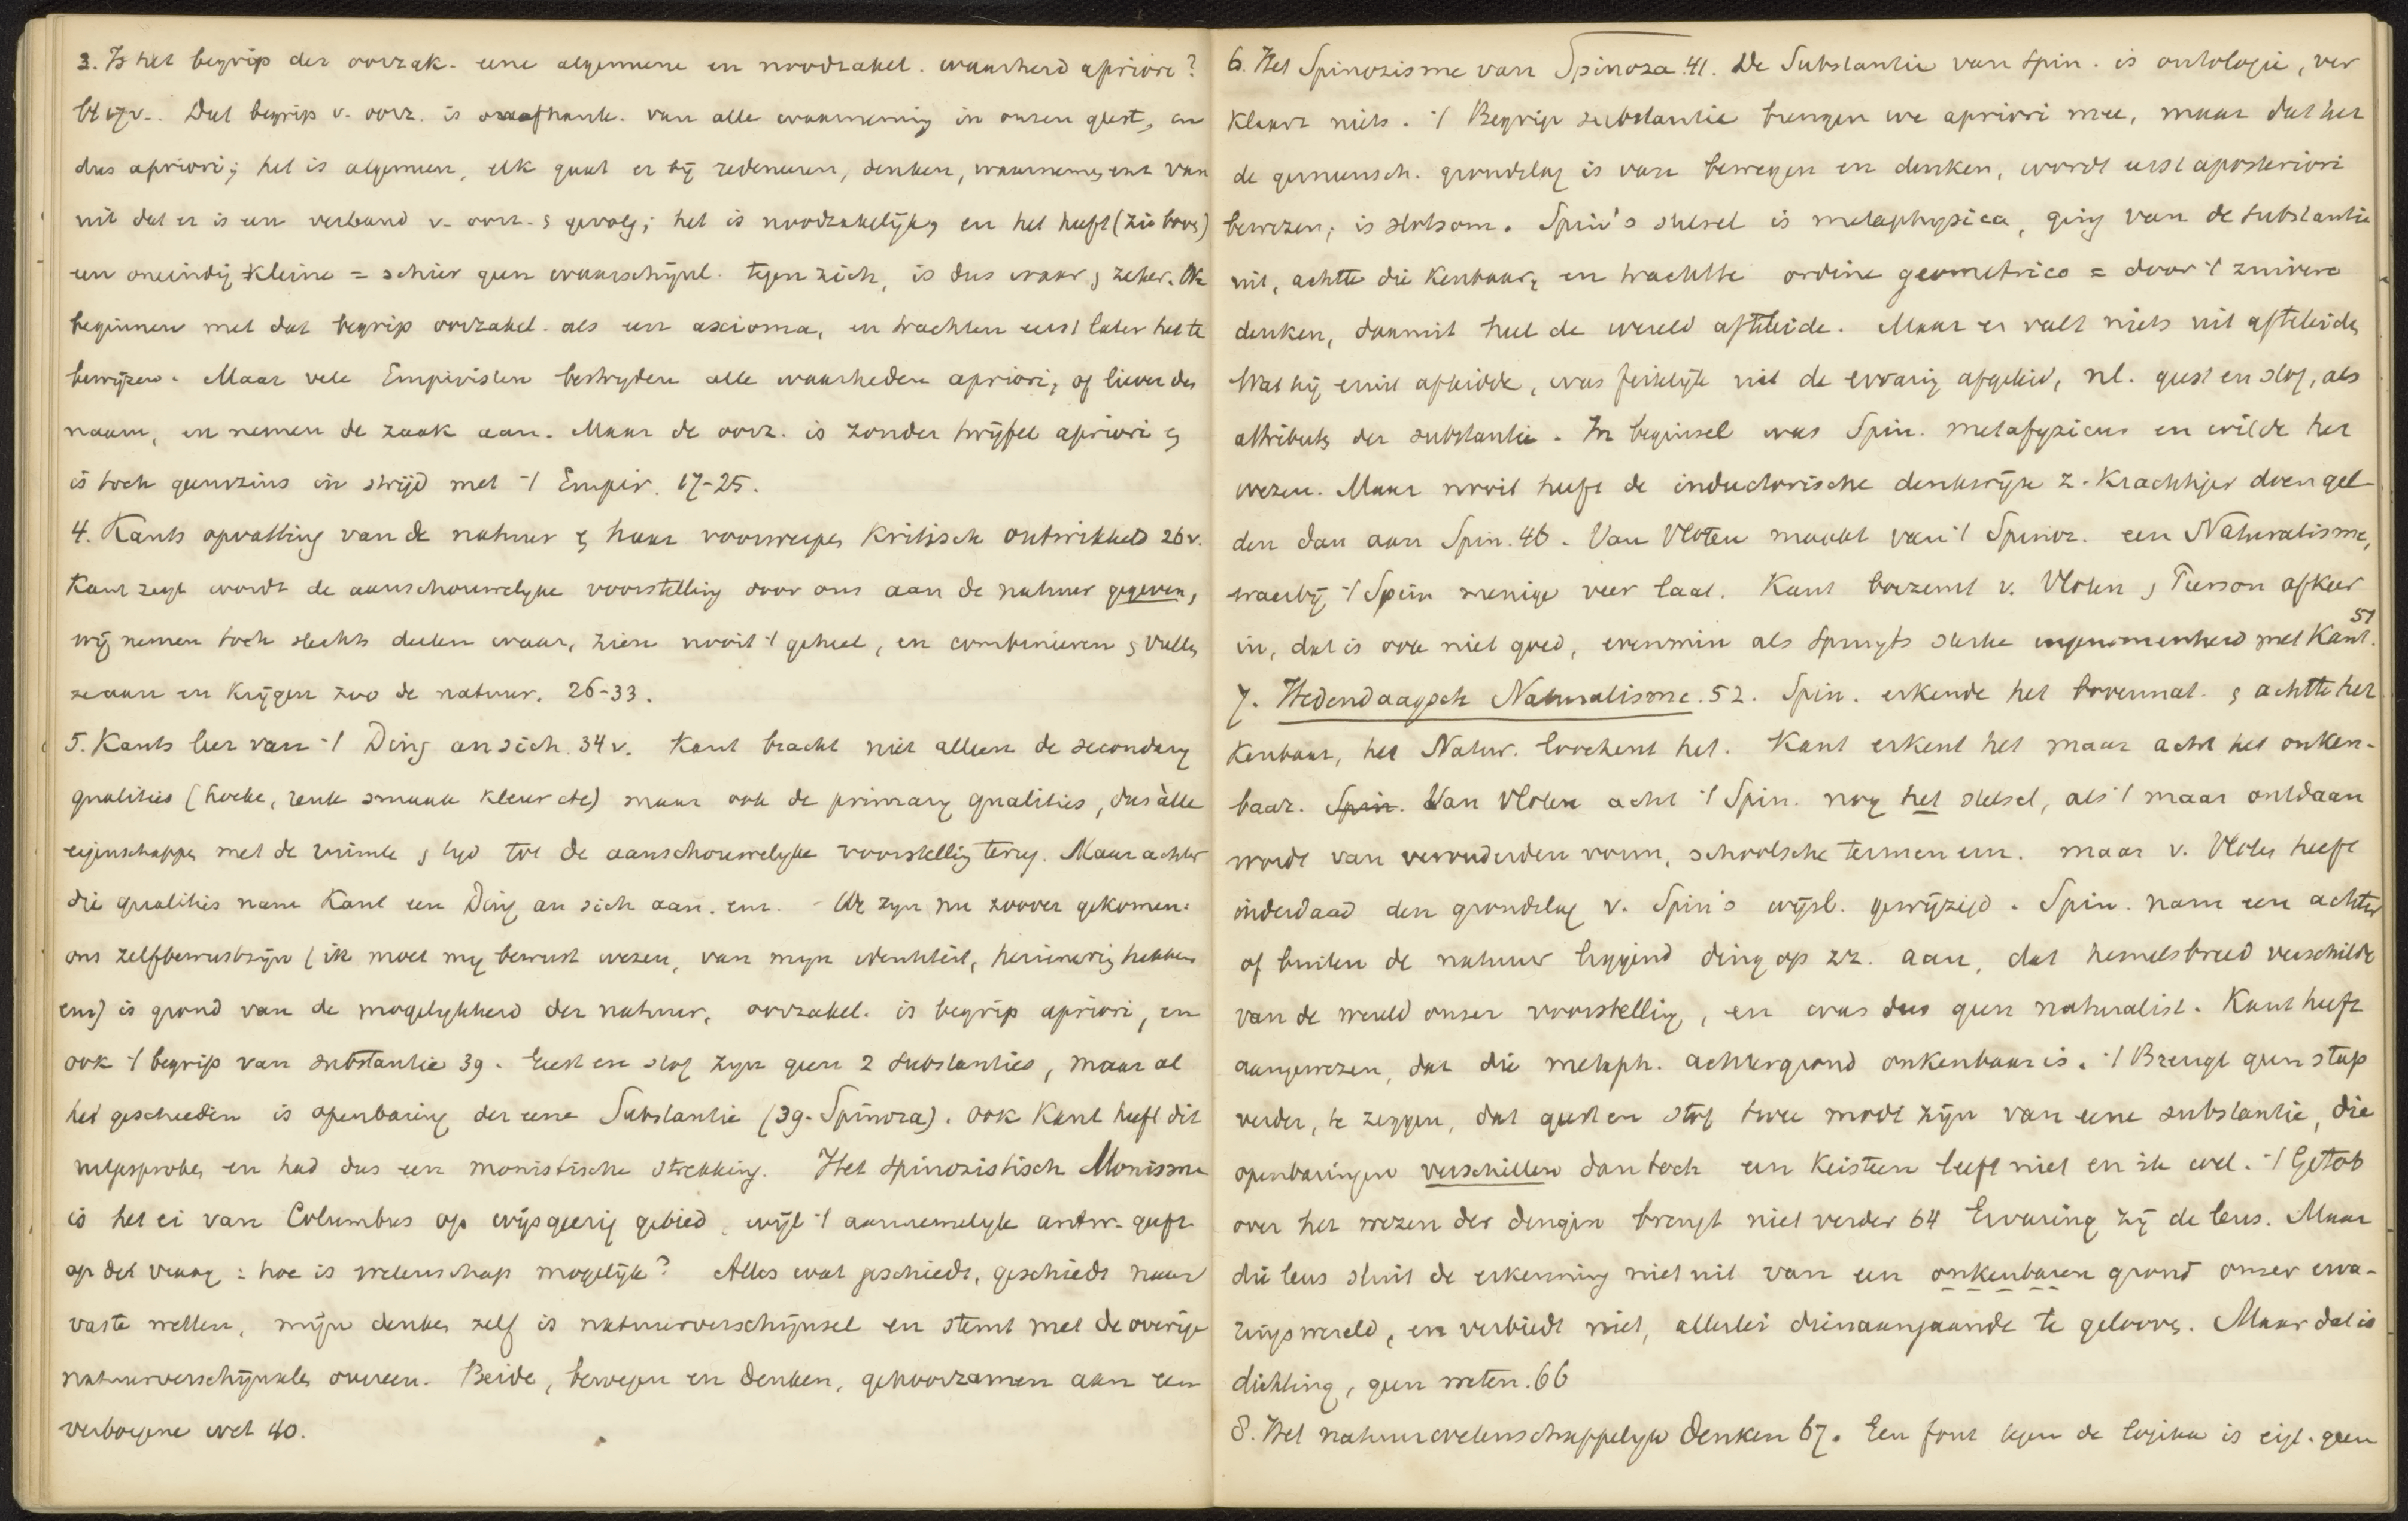 3. Is het begrip der oorzak. eene algemeene en noodzakel. waarheid apriori?
bl 17v. Dat begrip v. oorz. is onafhank. van alle waarneming in onzen geest, en
dus apriori; het is algemeen, elk gaat er bij redeneeren, denken, waarnemen enz van
uit dat er is een verband v. oorz. & gevolg; het is noodzakelijk, en het heeft (zie boven)
een oneindig kleine = schier geen waarschijnl. tegen zich, is dus waar & zeker. We
beginnen met dat begrip oorzakel. als een axioma, en trachten eerst later het te
bewijzen. Maar vele Empiristen bestryden alle waarheden apriori, of liever den
naam, en nemen de zaak aan. Maar de oorz. is zonder twijfel apriori en
is toch geenszins in strijd met 't Empir. 17-25.
4. Kants opvatting van de natuur & haar voorwerpen kritisch ontwikkeld 26v.
Kant zegt wordt de aanschouwelyke voorstelling door ons aan de natuur gegeven,
wij nemen toch slechts deelen waar, zien nooit 't geheel, en combineeren & vullen
ze aan en krijgen zoo de natuur. 26-33.
5. Kants leer van 't Ding an sich. 34v. Kant bracht niet alleen de secondary
qualities (hoeke, reuk smaak kleur etc) maar ook de primary qualities, dus àlle
eigenschappen met de ruimte & tyd tot de aanschouwelyke voorstelling terug. Maar achter
die qualities nam Kant een Ding an sich aan. enz. - We zyn nu zoover gekomen:
ons zelfbewustzijn (ik moet my bewust wezen, van myn identiteit, herinnering hebben
enz) is grond van de mogelykheid der natuur, oorzakel. is begrip apriori, en
ook 't begrip van substantie 39. Geest en stof zyn geen 2 substanties, maar al
het geschieden is openbaring der eene Substantie (39. Spinoza). Ook Kant heeft dit
uitgesproken en had dus een monistische strekking. Het Spinozistisch Monisme
is het ei van Columbus op wijsgeerig gebied, wijl 't aannemelyk antw. geeft
op de vraag: hoe is wetenschap mogelijk? Alles wat geschiedt, geschiedt naar
vaste wetten, mijn denken zelf is natuurverschijnsel en stemt met de overige
natuurverschijnselen overeen. Beide, bewegen en denken, gehoorzamen aan een
verborgene wet 40.
6. Het Spinozisme van Spinoza 41. De Substantie van Spin. is ontologie, ver
klaart niets. 't Begrip substantie brengen we apriori mee, maar dat het
de gemeensch. grondslag is van bewegen en denken, wordt eerst aposteriori
bewezen, is slotsom. Spin's stelsel is metaphysica, ging van de substantie
uit, achtte die kenbaar, en trachtte ordine geometrico = door 't zuivere
denken, daaruit heel de wereld afteleide. Maar er valt niets uit afteleiden
Wat hij eruit afleidde, was feitelijk uit de ervaring afgeleid, nl. geest en stof, als
attributen der substantie. In beginsel was Spin. metafyzicus en wilde het
wezen. Maar nooit heeft de inductorische denkwijze z. krachtiger doen gel-
den dan aan Spin. 46. Van Vloten maakt van 't Spinoz. een Naturalisme,
waarbij 't Spin menige veer laat. Kant boezemt v. Vloten & Pierson afkeer
in, dat is ook niet goed, evenmin als Spruyts sterke ingenomenheid met Kant. 51
7. Hedendaagsch Naturalisme. 52. Spin. erkende het bovennat. & achtte het
kenbaar, het Natur. loochent het. Kant erkent het maar acht het onken-
baar. Spin. Van Vloten acht 't Spin. nog het stelsel, als 't maar ontdaan
wordt van verouderden vorm, schoolsche termen enz. maar v. Vloten heeft
inderdaad den grondslag v. Spin's wijsb. gewijzigd. Spin. nam een achter
of buiten de natuur liggend ding op zz. aan, dat hemelsbreed verschilde
van de wereld onzer voorstelling, en was dus geen naturalist. Kant heeft
aangewezen, dat die metaph. achtergrond onkenbaar is. 't Brengt geen stap
verder, te zeggen, dat geest en stof twee modi zijn van eene substantie, die
openbaringen verschillen dan toch een keisteen leeft niet en ik wel. 't Getob
over het wezen der dingen brengt niet verder 64 Ervaring zij de leus. Maar
die leus sluit de erkenning niet uit van een onkenbaren grond onzer erva-
ringswereld, en verbiedt niet, allerlei dienaangaande te gelooven. Maar dat is
dichting, geen weten. 66
8. Het natuurwetenschappelyk Denken 67. Een fout tegen de logika is eigl. geen